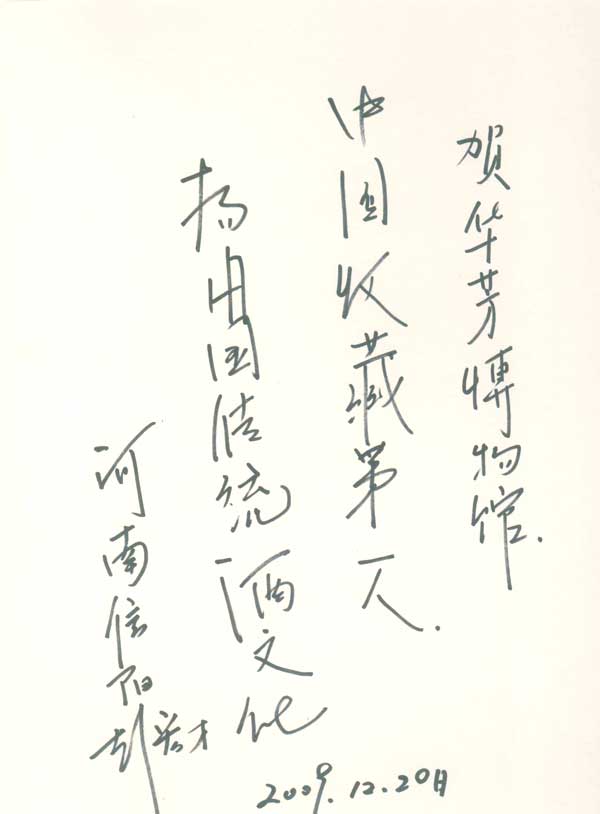 贺华芳博物馆.
中国收藏第一人.
扬中国传统酒文化
河南信阳彭
2009.12.20日